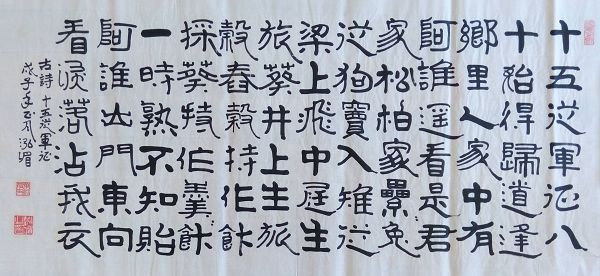 十五從軍征八
十始得歸道逢
鄉里人家中有
阿誰遥看是君
家松柏冢纍兔
從狗竇入雉從
梁上飛中庭生
旅葵井上生旅
穀舂穀持作飰
採葵持作羹飰
一時熟不知貽
阿誰出門東向
看淚落沾我衣
古詩 十五從軍征
戊子年